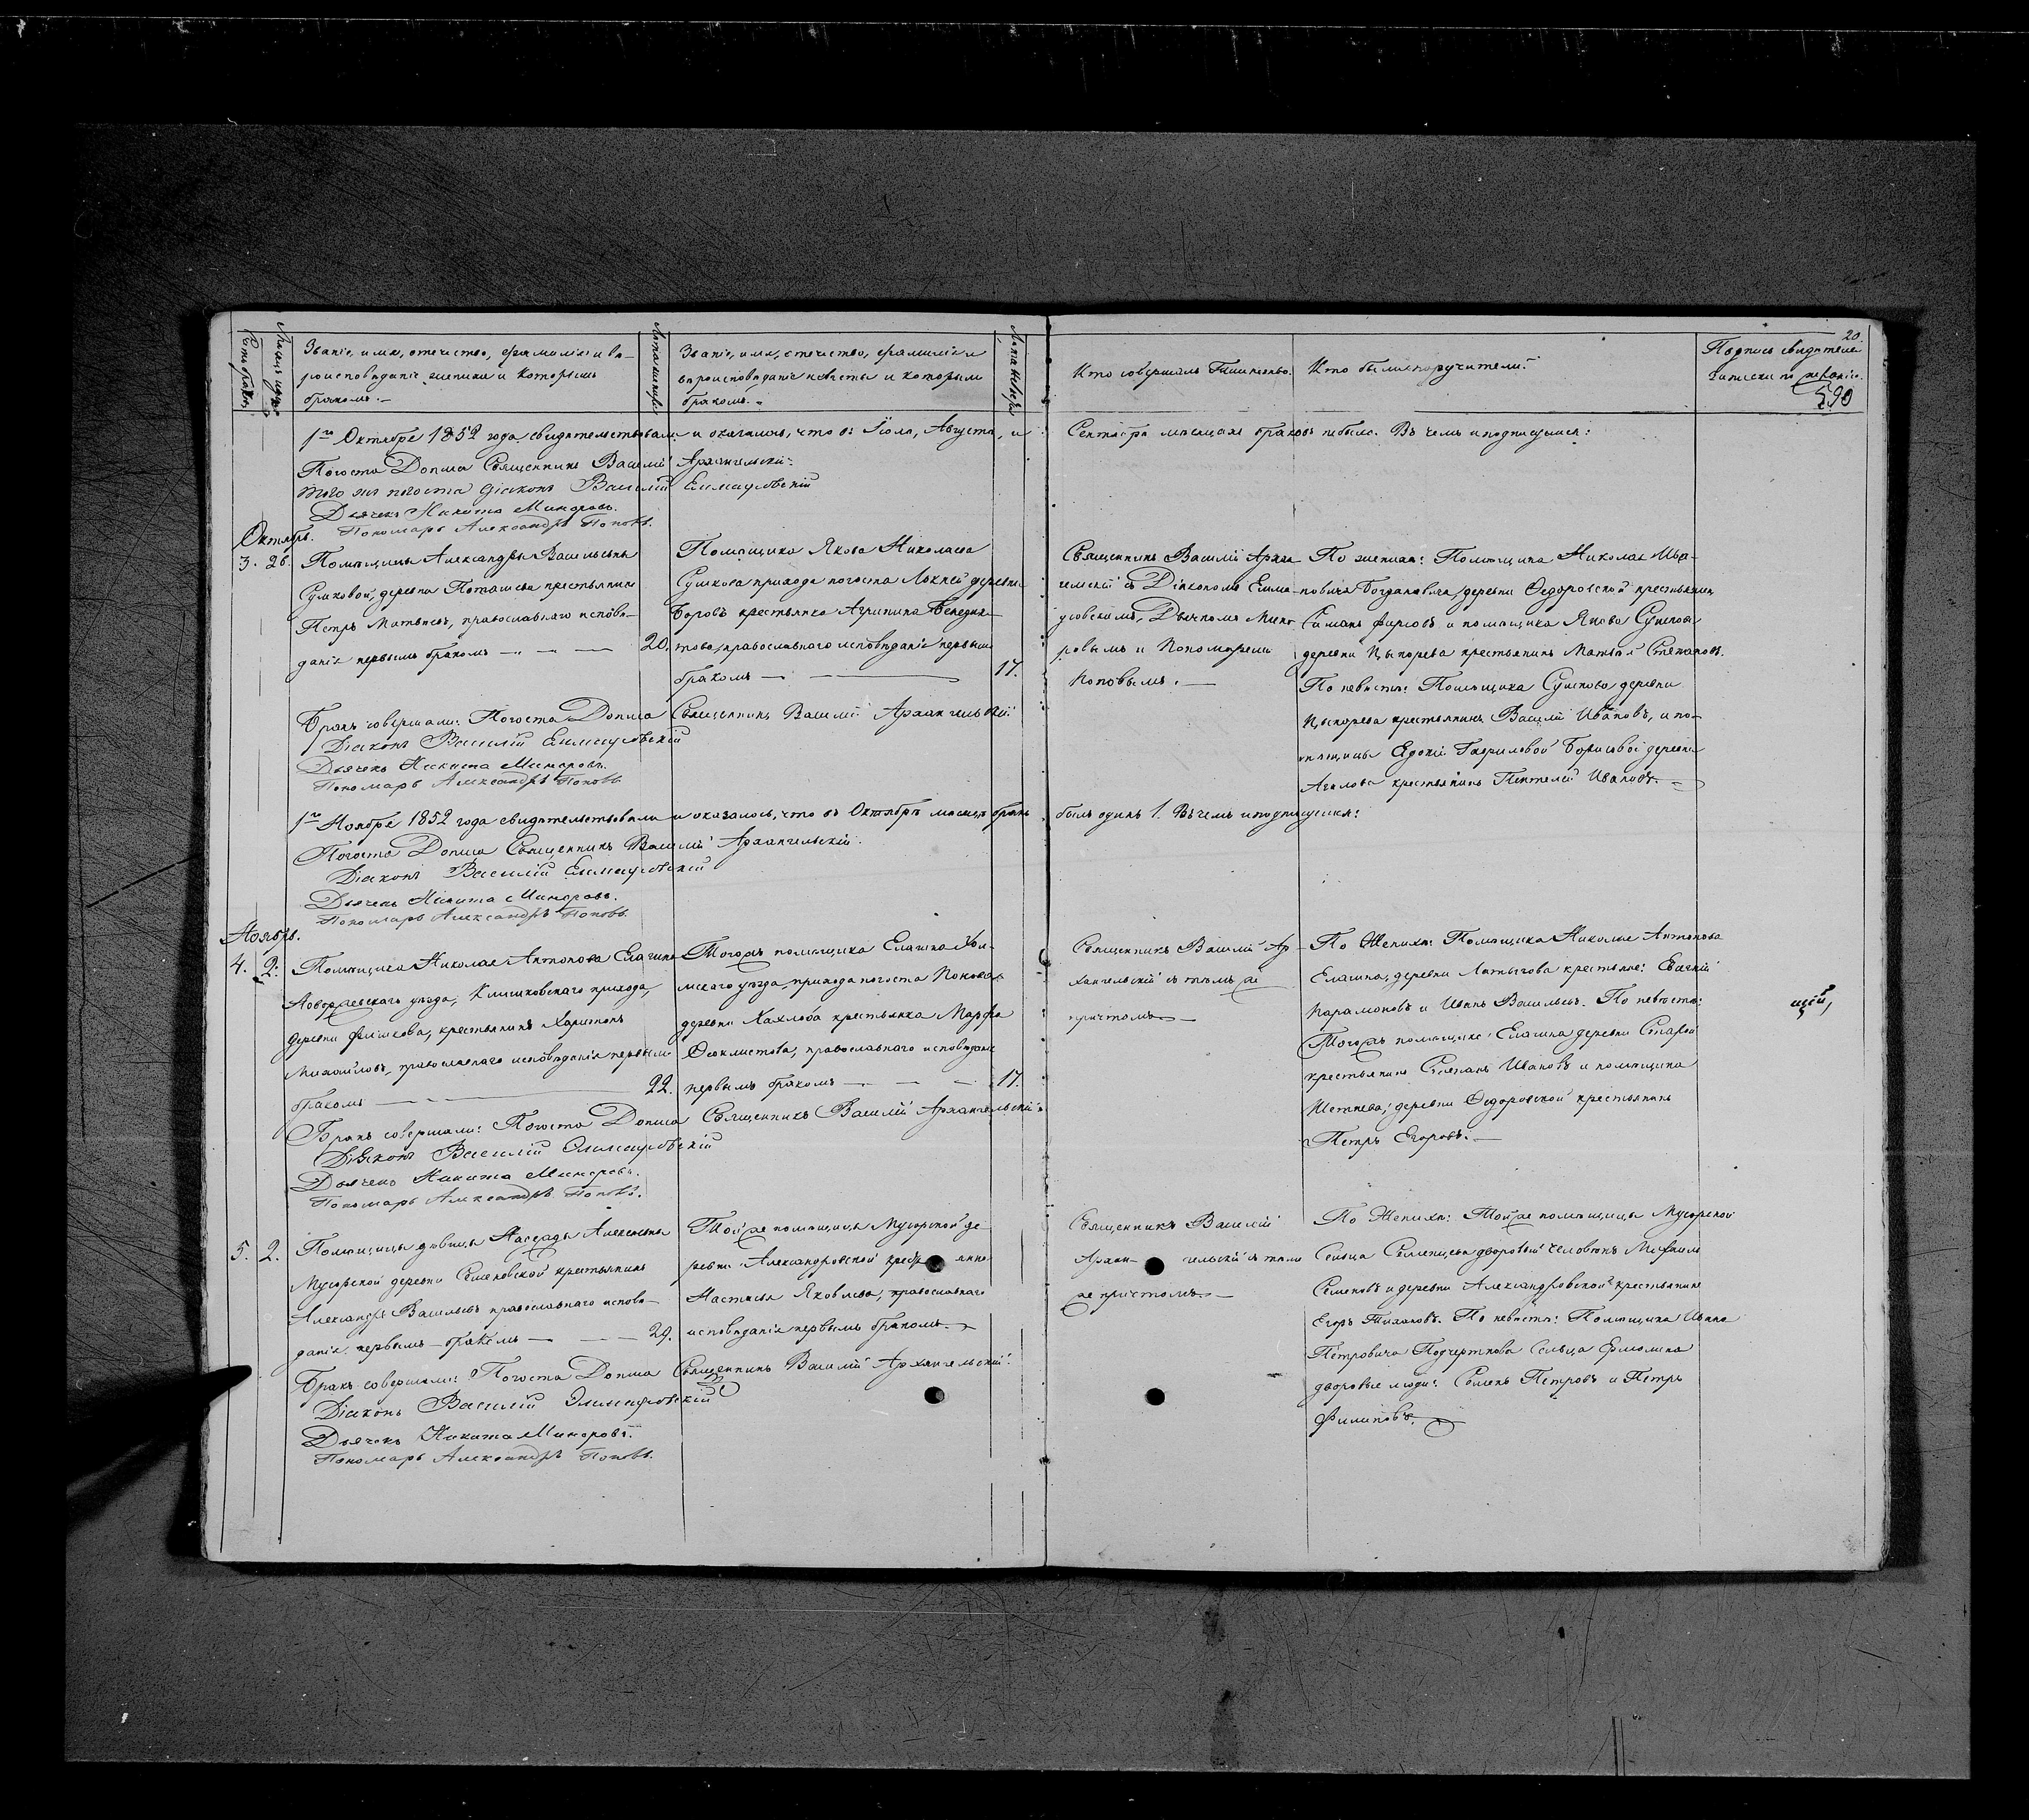 20.
Счетъ браковъ
Мѣсяцъ и день
Званіе, имя, отечество, фамилія и вѣ-
роисповѣданіе жениха и которымъ
бракомъ.
Лѣта жениха
Званіе, имя, отечество, фамилія и
вѣроисповѣданіе невѣсты и которымъ
бракомъ.
Лѣта невѣсты
Кто совершалъ Таинство.
Кто были поручители.
Подпись свидѣтелей
записки по желанію.
590
1го Октября 1852 года свидѣтельствовали и оказалось, что въ Іюлѣ, Августѣ, и Сентябрѣ мѣсяцахъ браковъ небыло. Въ чемъ и подписуемся:
Погоста Дописа Священникъ Василій Архангельскій
того же погоста Діаконъ Василій
Дьячекъ Никита Миноровъ.
Пономарь Александръ Поповъ.
Октябрь.
3. 26.
Помѣщицы Александры Васильевны
Сумковой, деревни Поташева крестьянинъ
Петръ Матвѣевъ, православнаго исповѣ-
данія первымъ бракомъ
20.
Помѣщика Якова Николаева
Сумкова прихода погоста Локней деревни
Боровъ крестьянка Агрипина Бенедик-
това, православнаго исповѣданія первымъ
бракомъ
17.
Священникъ Василій Архан-
гельскій съ Діакономъ
Дьячкомъ Мино-
ровымъ и Пономаремъ
Поповымъ.
По женихѣ: Помѣщика Николая Ива-
новича Богдановича, деревни Ѳедоровской крестьянинъ
Симанъ Фирсовъ и помѣщика Якова Сумкова
деревни Цыпорева крестьянинъ Матвѣй Степановъ.
По невѣстѣ: Помѣщика Сумкова деревни
Цыпорева крестьянинъ Василій Ивановъ, и по-
мѣщицы Гавриловой Борисовой деревни
крестьянинъ Пантелей Ивановъ.
Бракъ совершали: Погоста Дописа Священникъ Василій Архангельскій
Діаконъ Василій
Дьячекъ Никита Миноровъ.
Пономарь Александръ Поповъ
1го Ноября 1852 года свидѣтельствовали и оказалось, что въ Октябрѣ мѣсяцѣ бракъ былъ одинъ 1. Въ чемъ и подписуемся:
Погоста Дописа Священникъ Василій Архангельскій.
Діаконъ Василій
Дьячекъ Никита Миноровъ.
Пономарь Александръ Поповъ.
Ноябрь.
4. 2.
Помѣщика Николая Антонова Елагина
Новоржевскаго уѣзда, Клишковскаго прихода,
деревни крестьянинъ Харитонъ
Михайловъ, православнаго исповѣданія первымъ
бракомъ
22.
Тогожъ помѣщика Елагина Хол-
мскаго уѣзда, прихода погоста
деревни крестьянка Марфа
Ѳеоклистова, православнаго исповѣданія
первымъ бракомъ
17.
Священникъ Василій Ар-
хангельскій съ тѣмъ же
причтомъ
По Женихѣ: Помѣщика Николая Антонова
Елагина, деревни Латыгова крестьяне: Евгеній
Парамоновъ и Иванъ Васильевъ. По невѣстѣ:
Тогожъ помѣщика Елагина деревни Старой
крестьянинъ Степанъ Ивановъ и помѣщика
деревни Ѳедоровской крестьянинъ
Петръ Егоровъ.
Бракъ совершали: Погоста Дописа Священникъ Василій Архангельскій
Діаконъ Василій
Дьячекъ Никита Миноровъ.
Пономарь Александръ Поповъ.
5. 2.
Помѣщицы дѣвицы Алексѣевны
Мусорской деревни Семеновской крестьянинъ
Александръ Васильевъ православнаго исповѣ-
данія первымъ бракомъ
29.
Тойже помѣщицы Мусорской де-
ревни Александровской крестьянка
Настасья Яковлева, православнаго
исповѣданія первымъ бракомъ.
Священникъ Василій
Архангельскій съ тѣмъ
же причтомъ
По Женихѣ: Тойже помѣщицы Мусорской
Сельца дворовый человѣкъ Михаилъ
Семеновъ и деревни Александровской крестьянинъ
Егоръ Тихановъ. По невѣстѣ: Помѣщика Ивана
Петровича Подчерткова Сельца
дворовые люди: Семенъ Петровъ и Петръ
Филиповъ.
Бракъ совершали: Погоста Дописа Священникъ Василій Архангельскій.
Діаконъ Василій
Дьячекъ Никита Миноровъ.
Пономарь Александръ Поповъ.